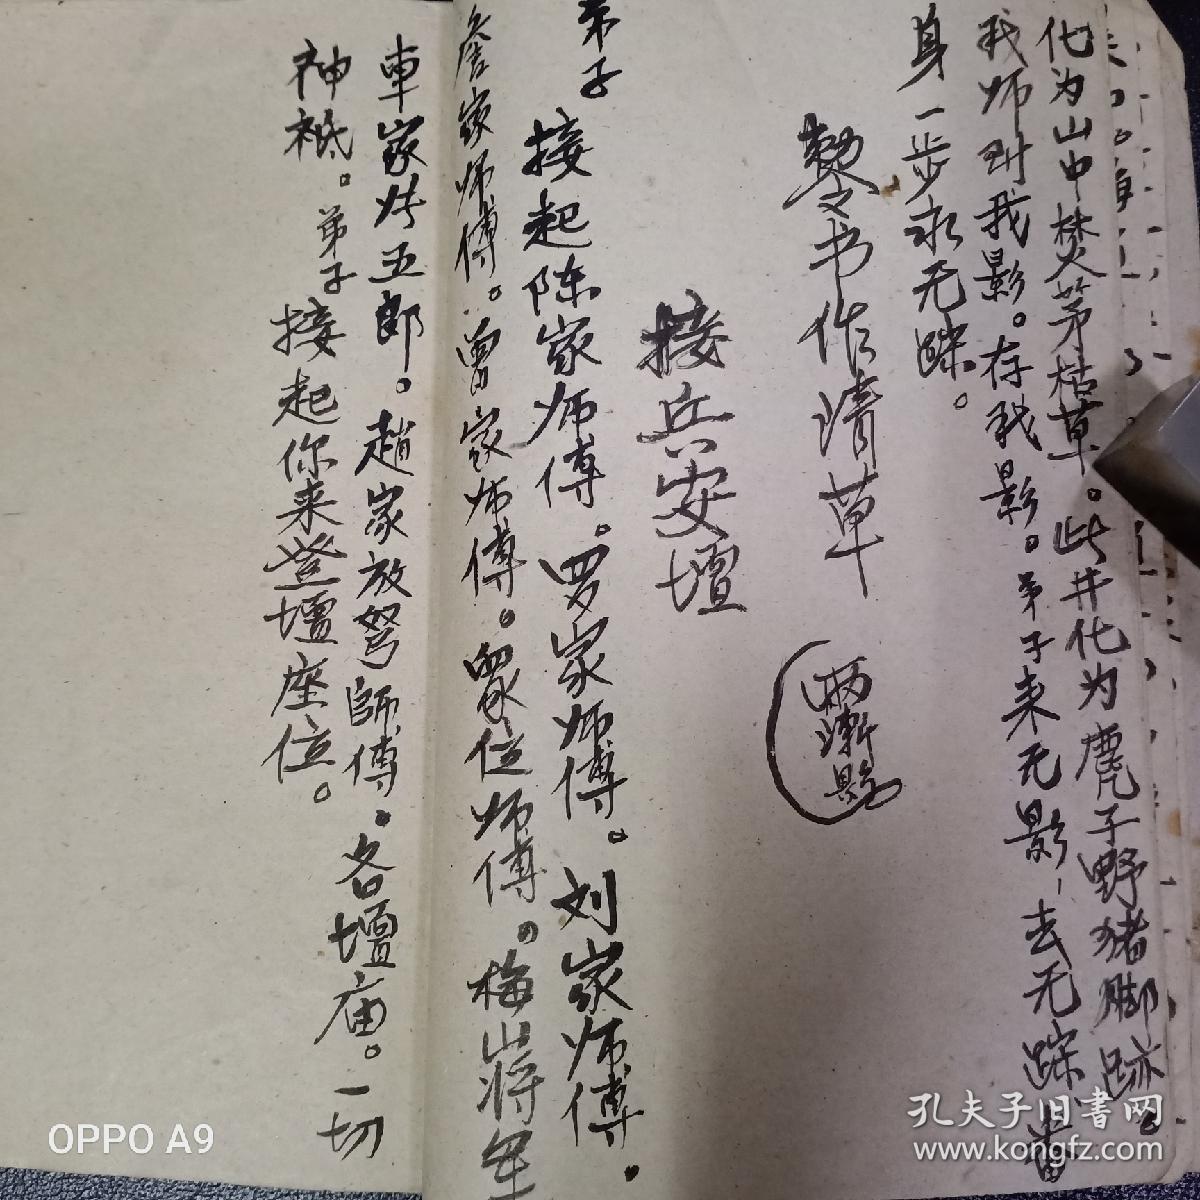 化为山中焚茅枯草。此井化为麂子野猪脚跡。
我师对我影。存我影。弟子来无影去无踪
身一步永无踪。
书作清草
接兵安壇
弟子 接起陈家师傅。罗家师傅。刘家师傅。
詹家师傅。曾家师傅。眾位师傅。梅山将军
車家 五郎。趙家放弩師傅。各壇庙。一切
神祗。弟子 接起你来登壇座位。
OPPO A9
孔夫子旧书网
www.kongfz.com